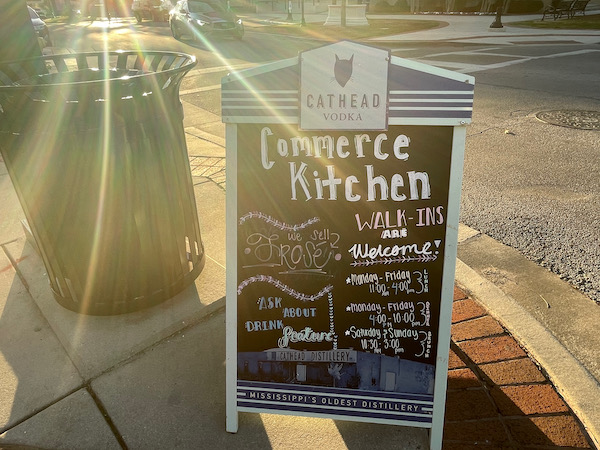 CATHEAD
VODKA
Commerce
Kitchen
WALK-INS
ARE
Welcome!
we sell
Frosé
ASK
ABOUT
DRINK
feature
*Monday - Friday
11:00 - 4:00
AM
PM
LUNCH
*monday - Friday
4:00 - 10:00
PM
PM
*Saturday & Sunday
10:30 - 3:00
AM
PM
BRUNCH
CATHEAD DISTILLERY
MISSISSIPPI'S OLDEST DISTILLERY